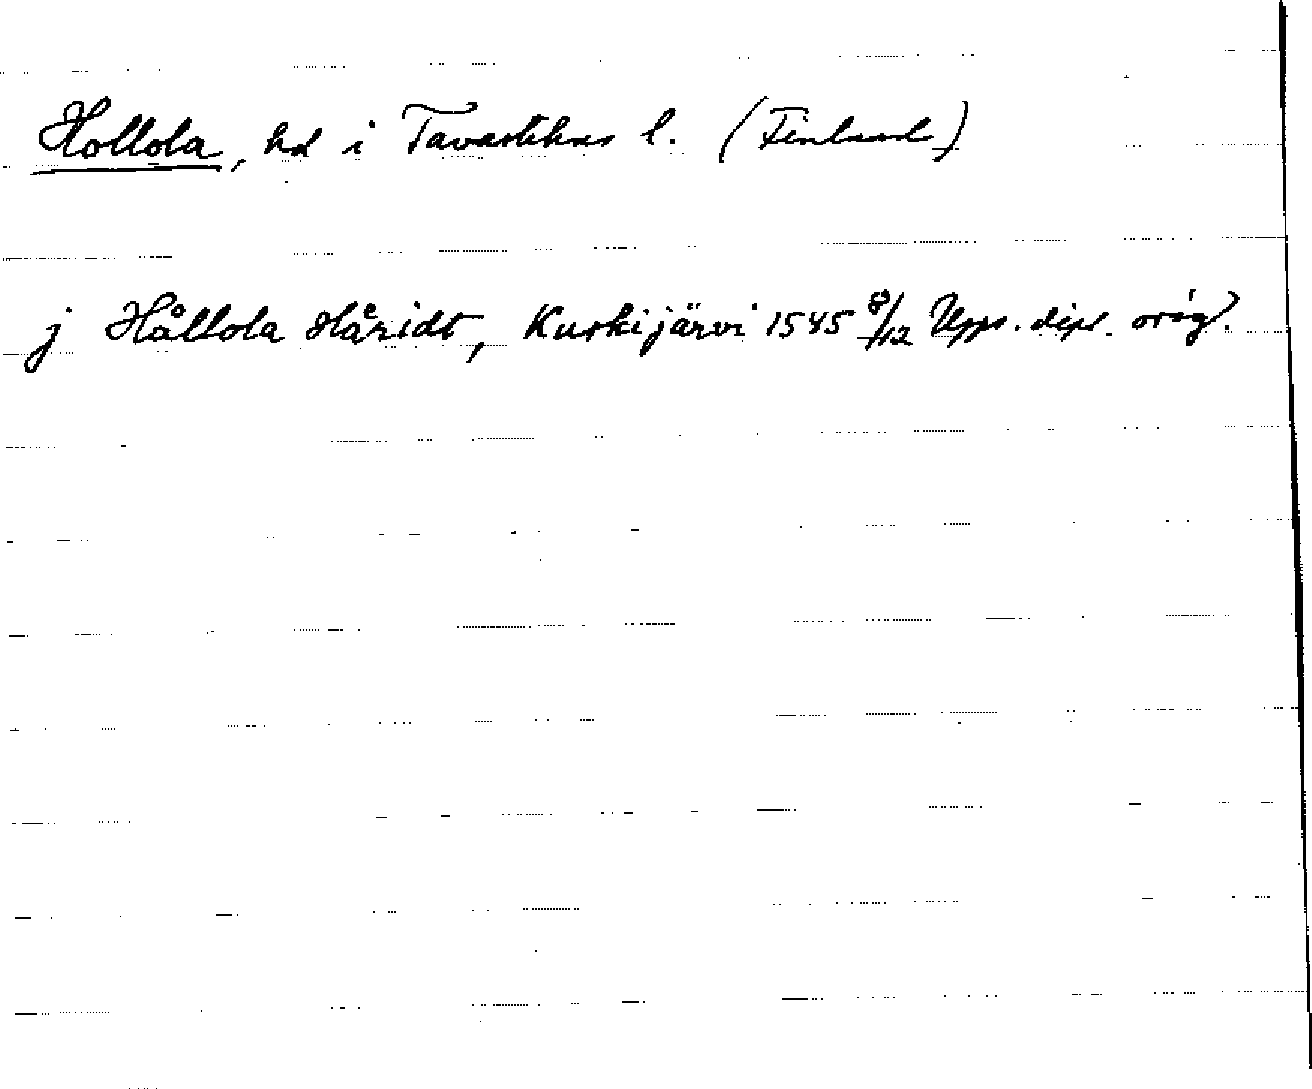 Hollola, hd i Tavastehus l. (Finland)
j Hållola Håridt, Kuskijärvi 1545 8/12 Upps. dipl. orig.